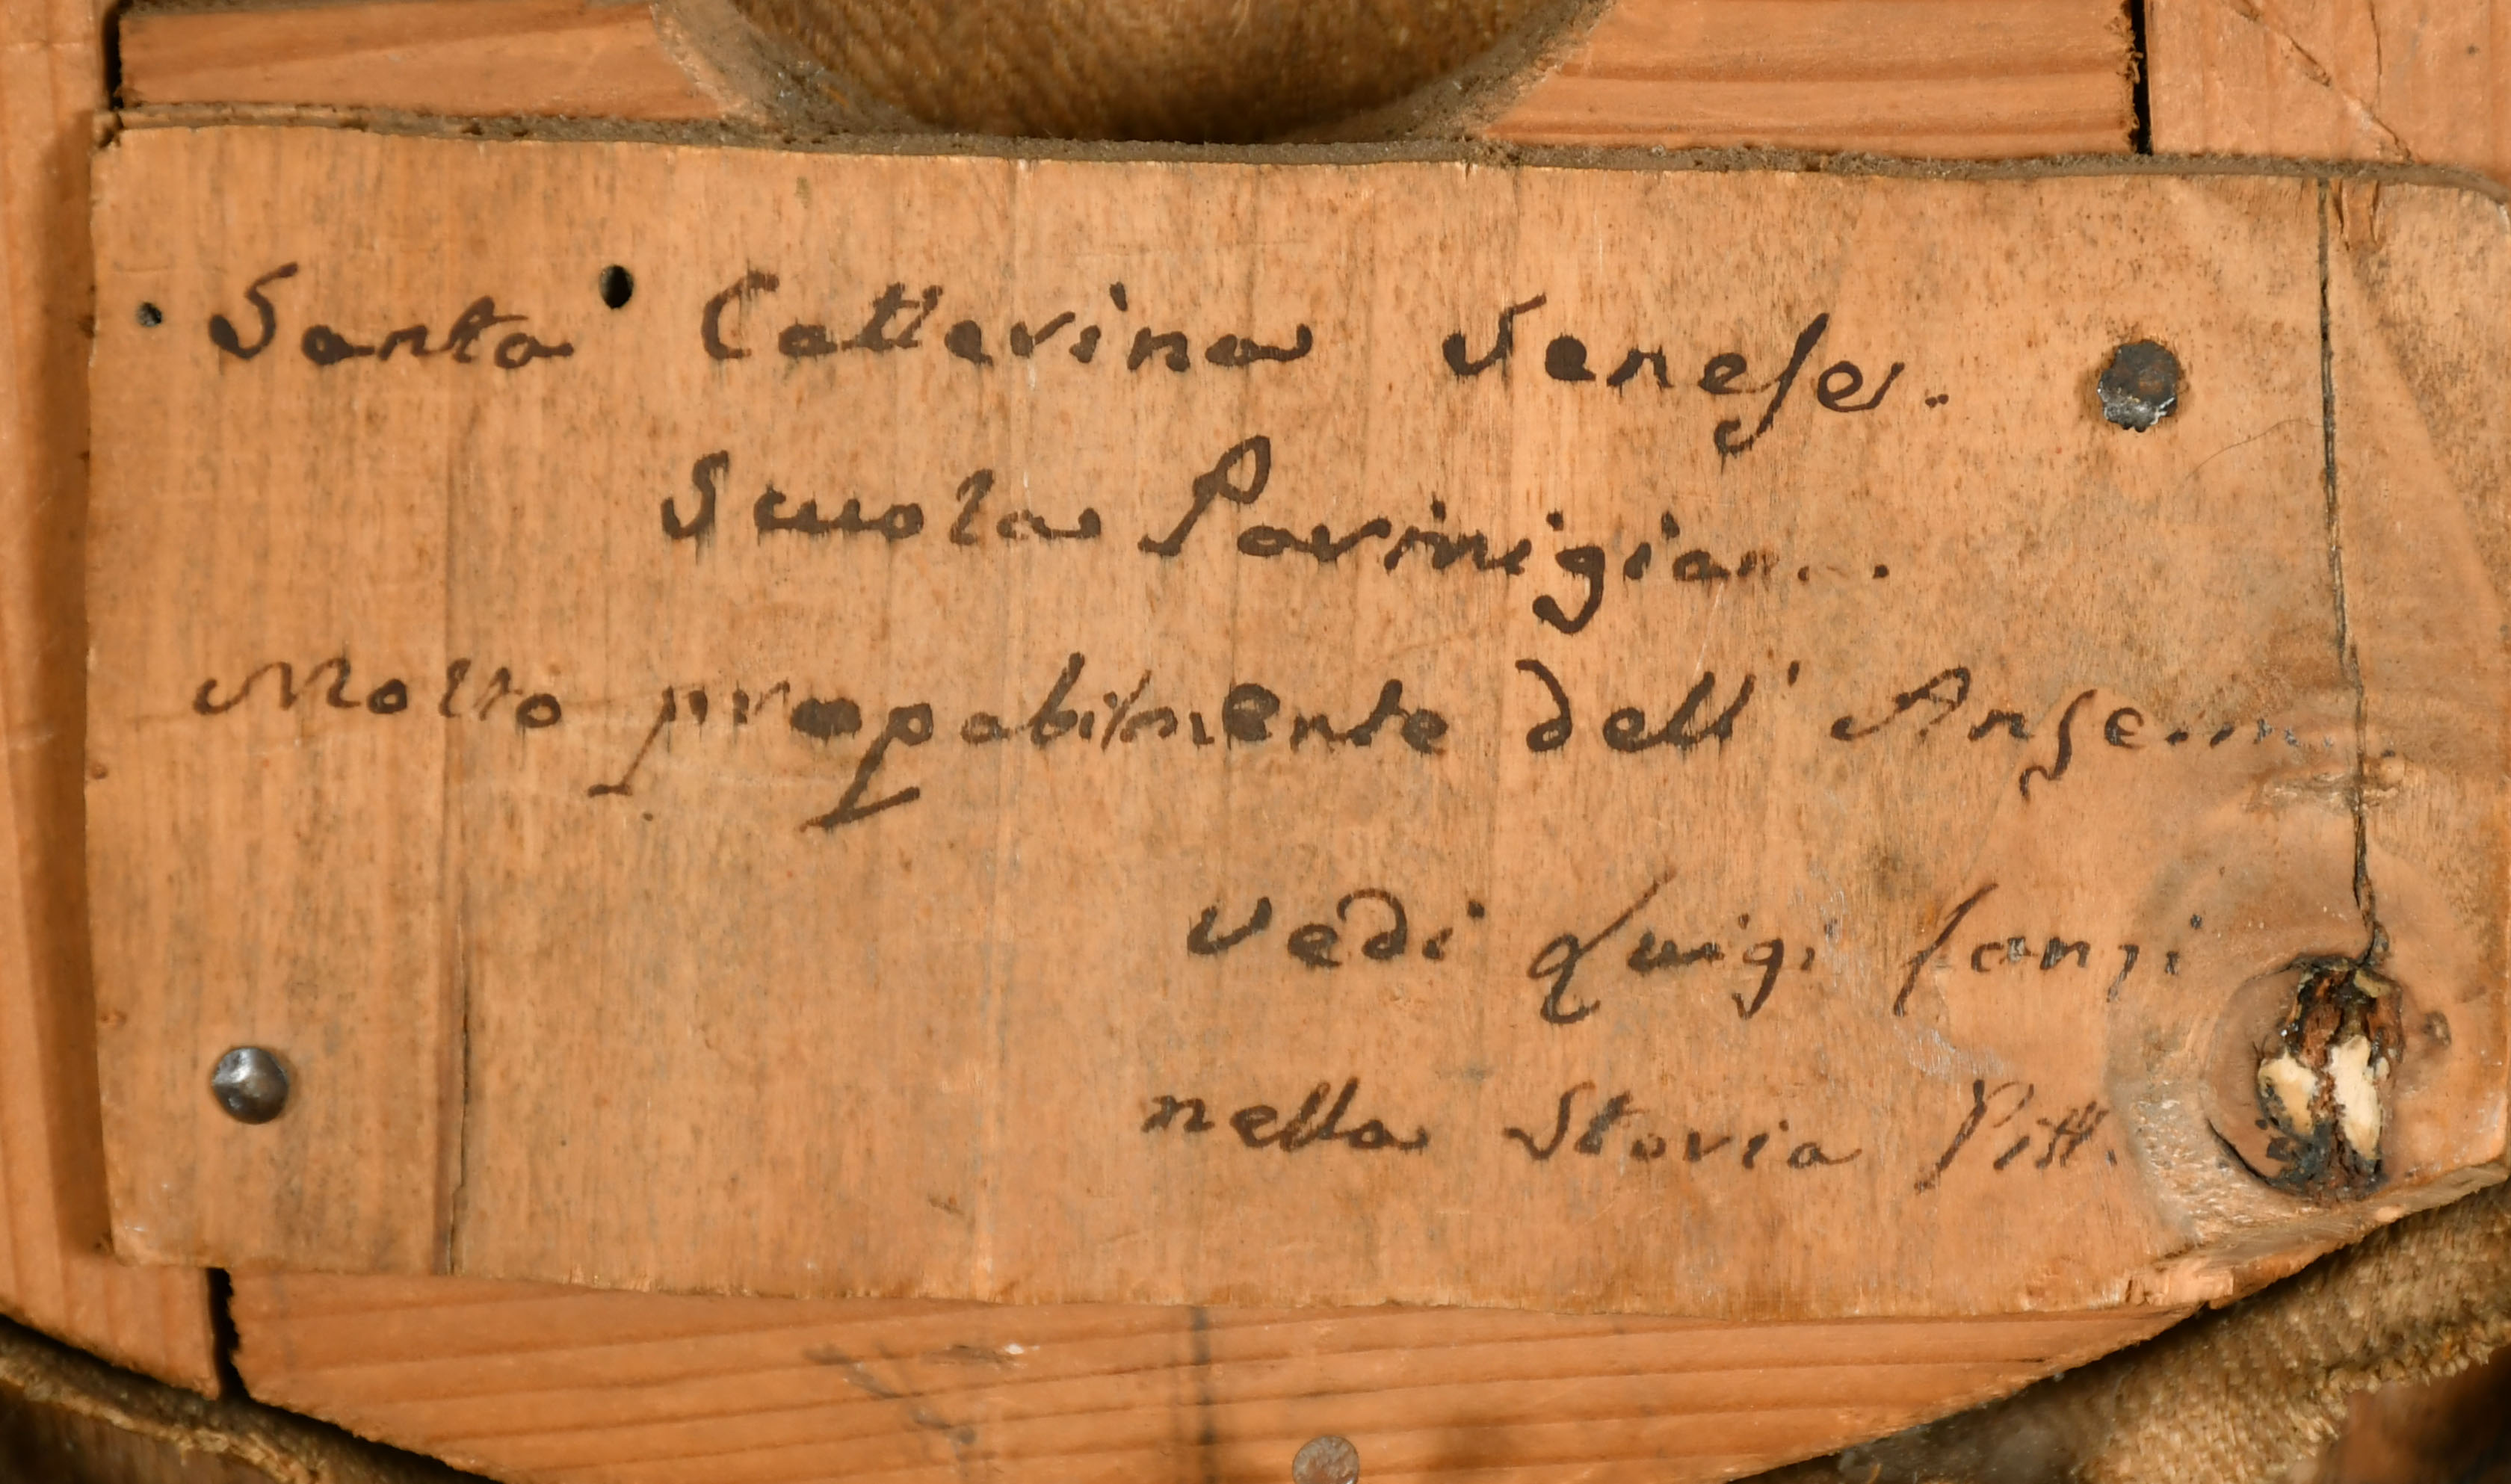 Santa Catterina Senese.
Scuola Parmigian...
Molto propabilmente dell' Anselm...
vedi Luigi Lanzi
nella Storia Pitt.